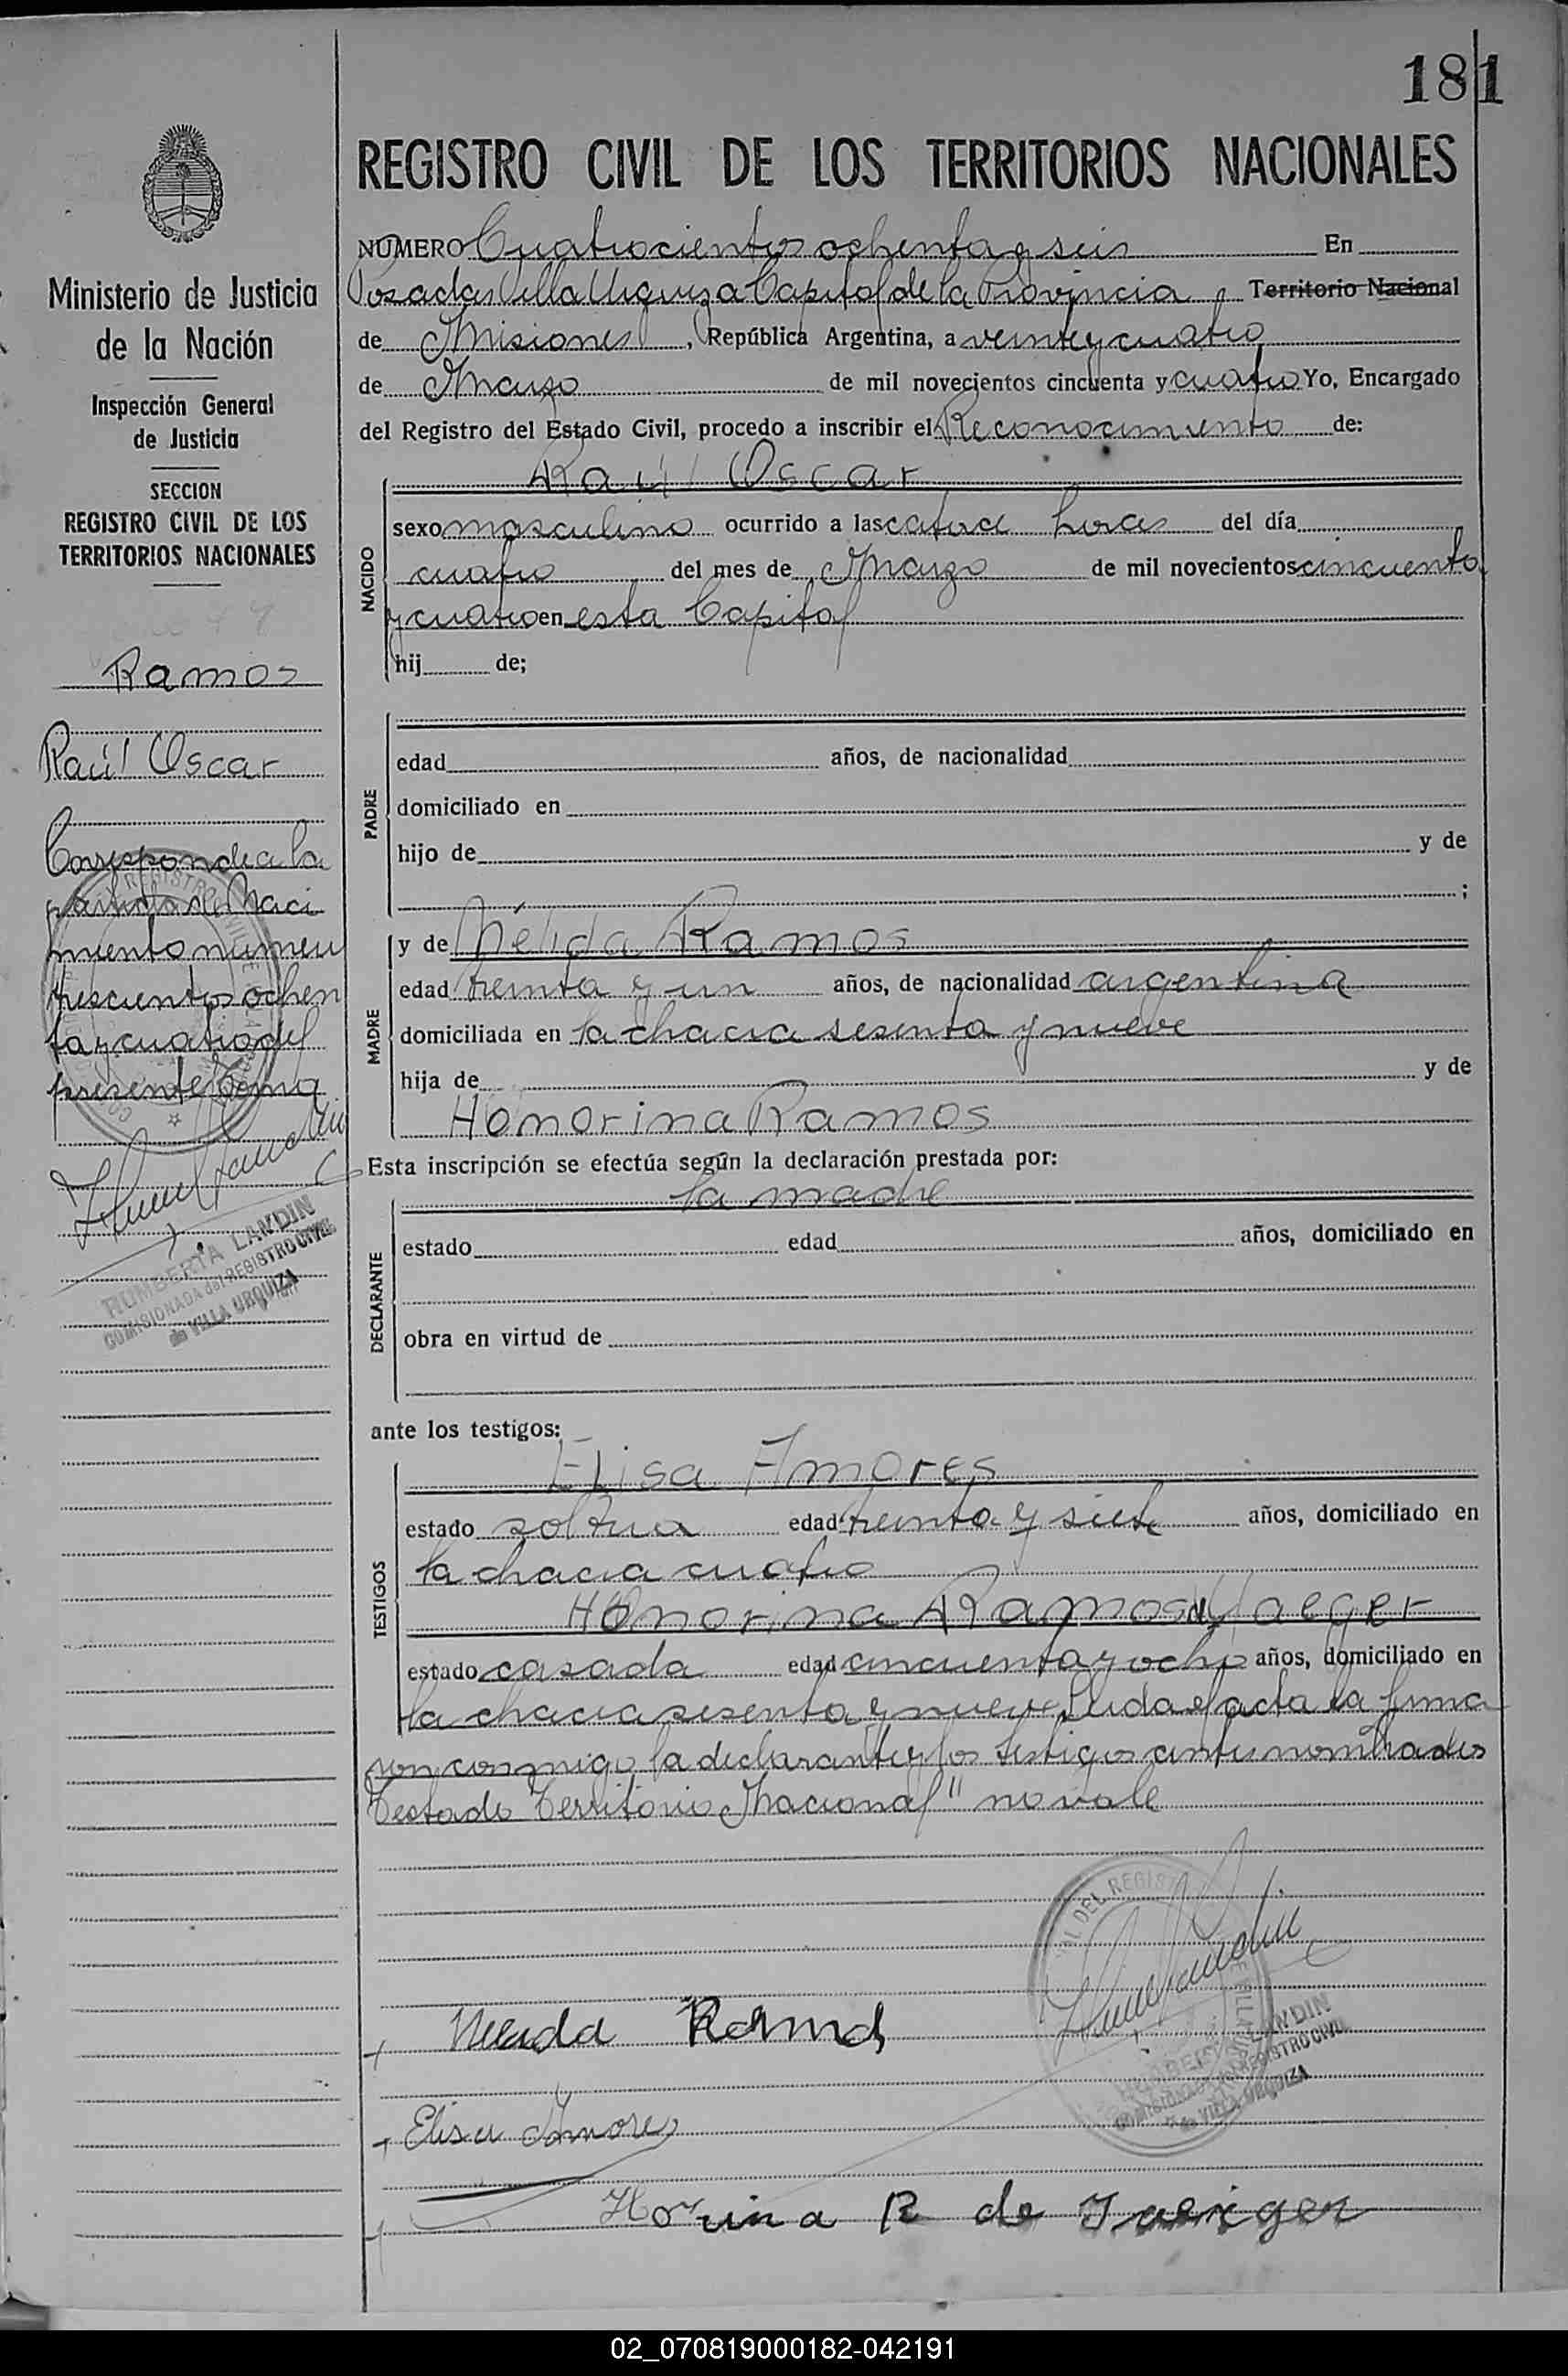 181
REGISTRO CIVIL DE LOS TERRITORIOS NACIONALES
Ministerio de Justicia
de la Nación
Inspección General
de Justicia
SECCION
REGISTRO CIVIL DE LOS
TERRITORIOS NACIONALES
Ramos
Raúl Oscar
Corresponde a la
partida de Naci
miento numero
trescientos ochen
ta y cuatro del
presente Tomo
HUMBERTA LANDIN
COMISIONADA del REGISTRO CIVIL
de VILLA URQUIZA
NUMERO Cuatrocientos ochenta y seis En
Posadas Villa Urquiza Capital de la Provincia Territorio Nacional
de Misiones, República Argentina, a veinte y cuatro
de Marzo de mil novecientos cincuenta y cuatro Yo, Encargado
del Registro del Estado Civil, procedo a inscribir el Reconocimiento de:
NACIDO
Raúl Oscar
sexo masculino ocurrido a las catorce horas del día
cuatro del mes de Marzo de mil novecientos cincuenta
y cuatro en esta Capital
hij de;
PADRE
edad años, de nacionalidad
domiciliado en
hijo de y de
;
MADRE
y de Nélida Ramos
edad treinta y un años, de nacionalidad argentina
domiciliada en la chacra sesenta y nueve
hija de y de
Honorina Ramos
Esta inscripción se efectúa según la declaración prestada por:
la madre
DECLARANTE
estado edad años, domiciliado en
obra en virtud de
ante los testigos:
TESTIGOS
Elisa Amores
estado soltera edad treinta y siete años, domiciliado en
la chacra cuatro
Honorina Ramos de Yaeger
estado casada edad cincuenta y ocho años, domiciliado en
la chacra sesenta y nueve Leida el acta la firma
ron conmigo la declarante y los testigos antes nombrados
Testado Territorio Nacional" no vale
Nelida Ramos
HUMBERTA LANDIN
COMISIONADA del REGISTRO CIVIL
de VILLA URQUIZA
Elisa Amores
Horina R de Jaeiger
02_070819000182-042191